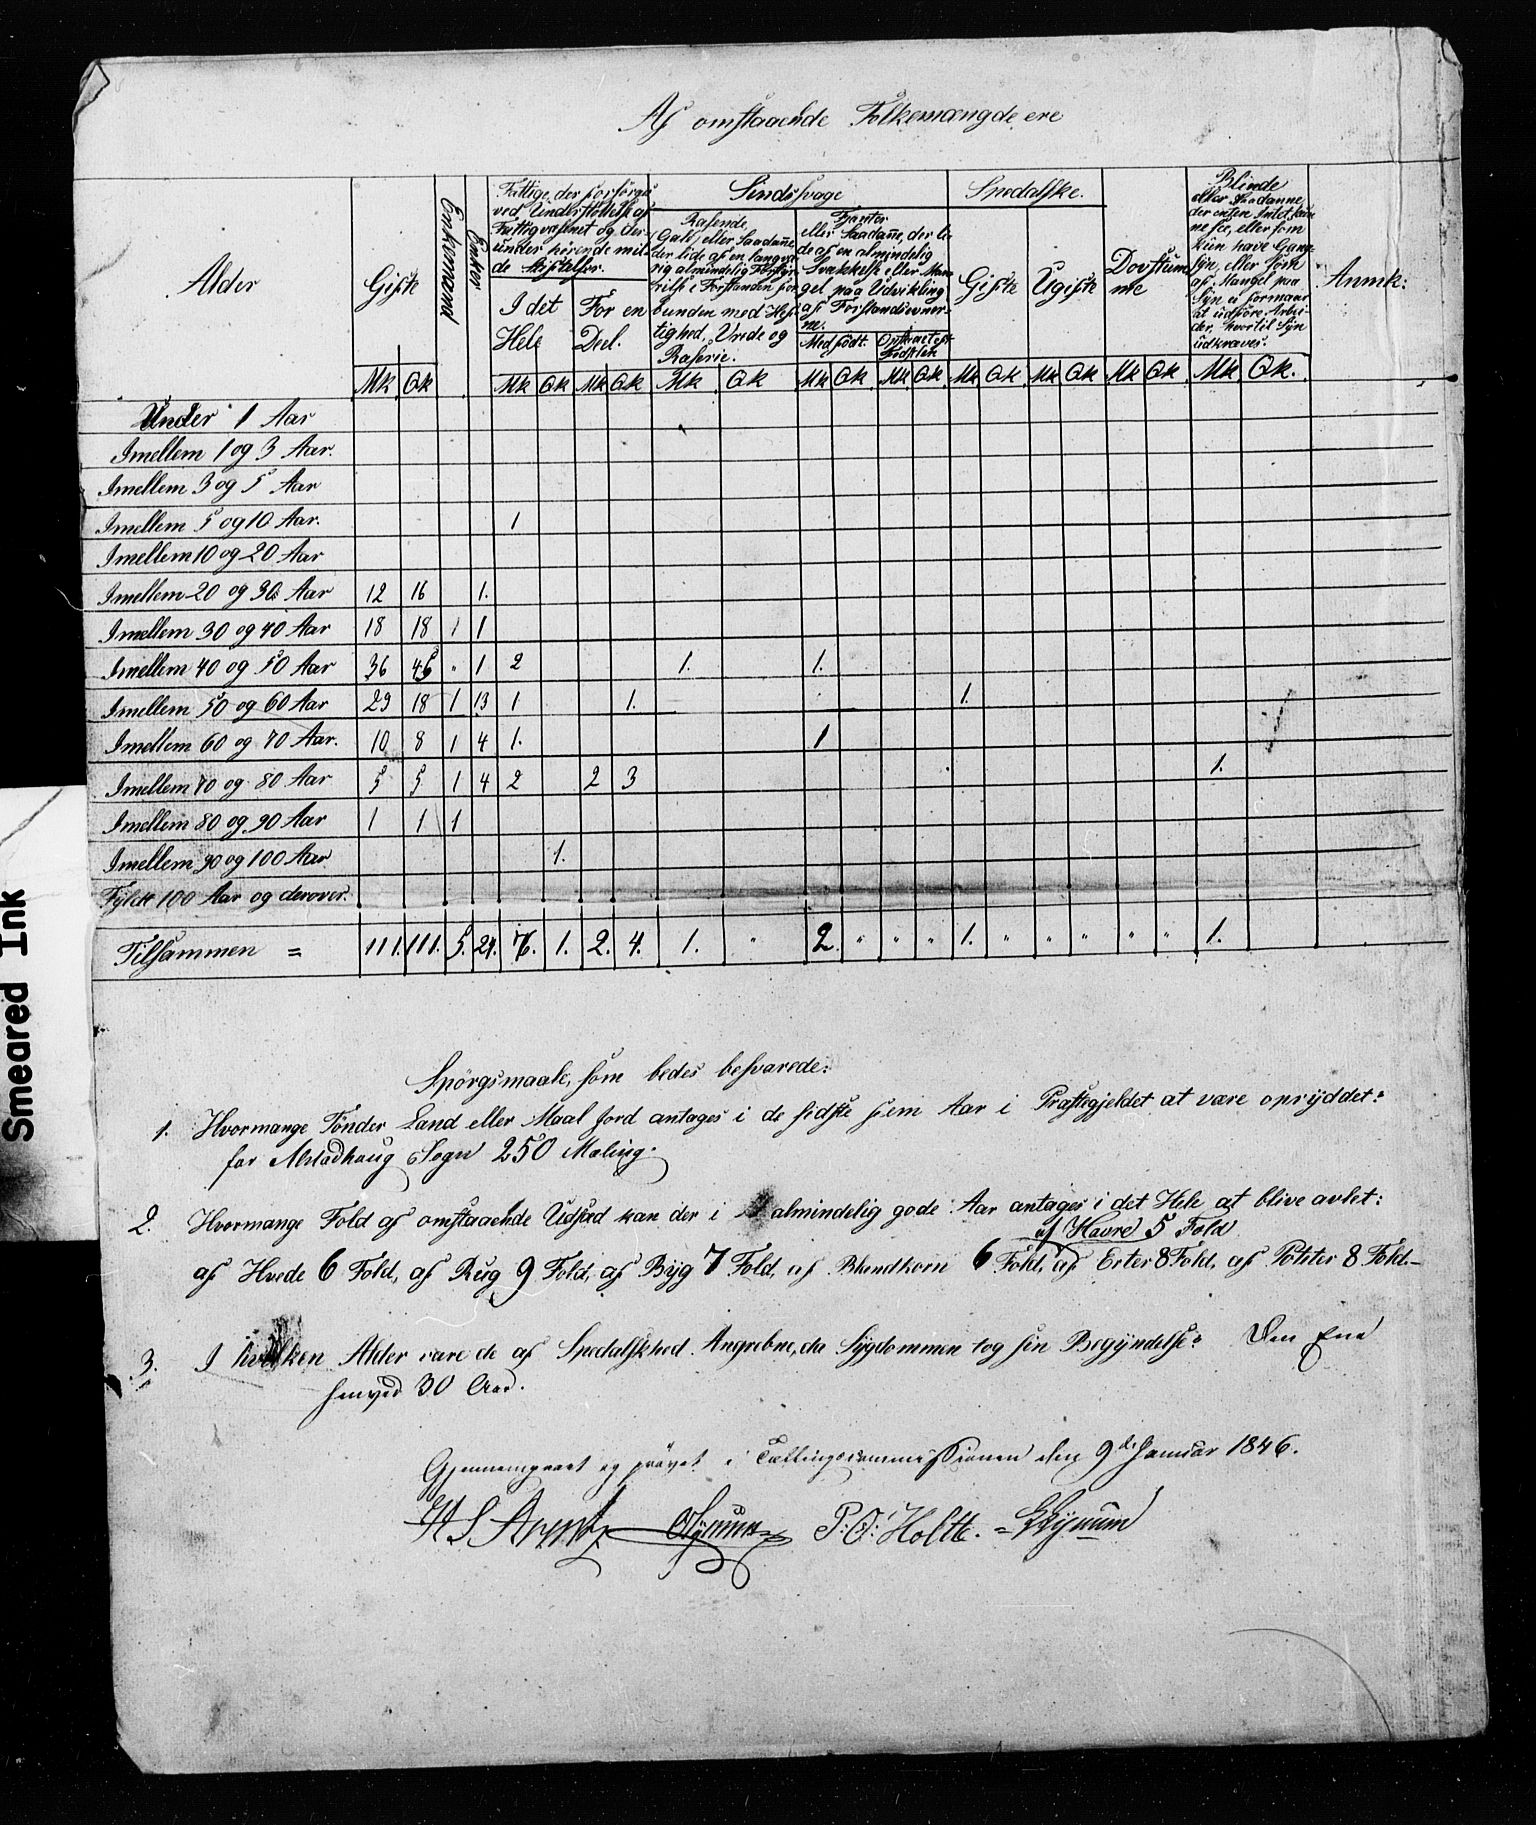 Af omstaaende Folkemængde ere
Alder
Gifte
Enkemænd
Enker
Fattige, der forsörges
ved Understöttelse af
Fattigvæsenet og der-
under hörende mil-
de Stiftelser.
I det
Hele
For en
Deel.
Sindssvage
Rasende
(Gale) eller Saadanne,
der lide af en langva-
rig almindelig Forstyr-
relse i Forstanden for-
bunden med Hef-
tighed, Vrede og
Raserie.
Fjanter
eller Saadanne, der li-
de af en almindelig
Svækkelse eller Man-
gel paa Udvikling
af Forstandsevner-
ne.
Medfödt
Opstaaet eft.
Födselen
Spedalske.
Gifte
Ugifte
Dovstum-
me
Blinde
eller Saadanne,
der enten Intet kun-
ne see, eller som
kun have Gang-
syn, eller som
af Mangel paa
Syn ei formaae
at udföre Arbei-
der, hvortil Syn
udkræves.
Anmk:
Mk Qk Mk Qk Mk Qk Mk Qk Mk Qk Mk Qk Mk Qk Mk Qk Mk Qk Mk Qk.
Under 1 Aar
Imellem 1 og 3 Aar.
Imellem 3 og 5 Aar
Imellem 5 og 10 Aar. 1
Imellem 10 og 20 Aar
Imellem 20 og 30 Aar 12 16 1.
Imellem 30 og 40 Aar 18 18 1 1
Imellem 40 og 50 Aar 36 45 " 1 2 1. 1.
Imellem 50 og 60 Aar 29 18 1 13 1. 1. 1.
Imellem 60 og 70 Aar. 10 8 1 4 1. 1
Imellem 70 og 80 Aar 5 5 1 4 2 2 3 1.
Imellem 80 og 90 Aar 1 1 1
Imellem 90 og 100 Aar 1.
Fyldt 100 Aar og derover.
Tilsammen = 111. 111. 5. 24. 1. 2. 4. 1. " 2. " " " 1. " " " " " 1.
Spörgsmaale, som bedes besvarede:
1. Hvormange Tönder Land eller Maal Jord antages i de sidste fem Aar i Præstegjeldet at være opryddet?
for Alstadhoug Sogn 250 Maling.
2. Hvormange Fold af omstaaende Udsæd kan der i almindelig gode Aar antages i det Hele at blive avlet:
af Havre 5 Fold
af Hvede 6 Fold, af Rug 9 Fold, af Byg 7 Fold, af Blandkorn 6 Fold, af Erter 8 Fold, af Poteter 8 Fold.-
3. I hvilken Alder vare de af Spedalskhed Angrebne, da Sygdommen tog sin Begyndelse? Den Ene
henved 30 Aar.
Gjennemgaaet og prövet i Tællingscommissionen den 9de Januar 1846.
P: O: Holte.
Smeared Ink